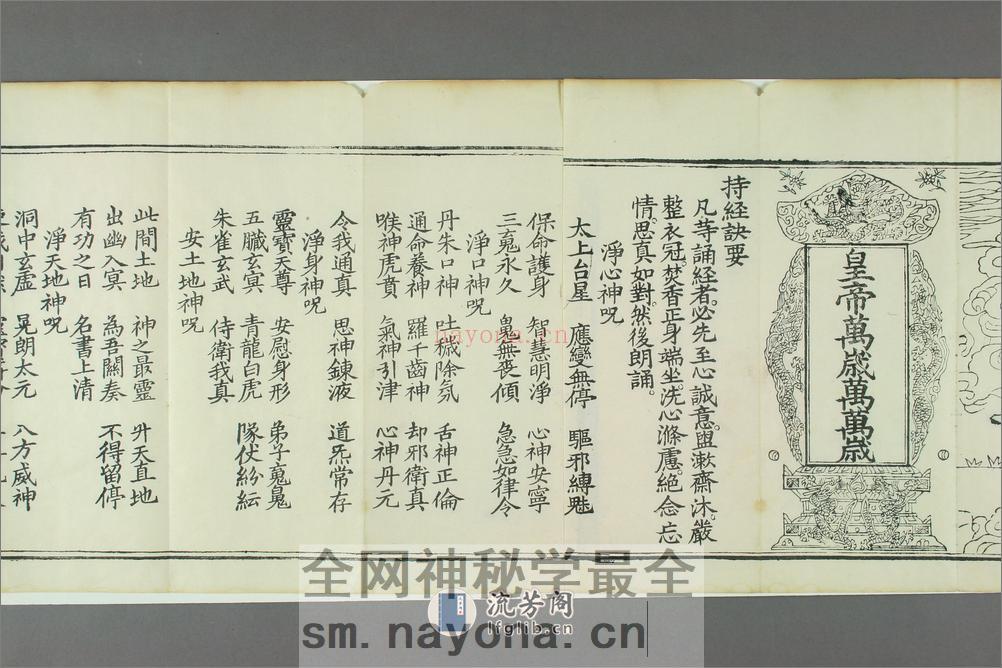 皇帝萬歲萬萬歲
持經訣要
凡等誦經者。必先至心誠意。盥漱齋沐。嚴
整衣冠。焚香正身端坐。洗心滌慮。絕念忘
情。思真如對。然後朗誦。
淨心神呪
太上台星 應變無停 驅邪縛魅
保命護身 智慧明淨 心神安寧
三䰟永久 䰟無丧傾 急急如律令
淨口神呪
丹朱口神 吐穢除氛 舌神正倫
通命養神 羅千齒神 却邪衛真
喉神虎賁 氣神引津 心神丹元
令我通真 思神鍊液 道炁常存
淨身神呪
靈寶天尊 安慰身形 弟子䰟
五臟玄冥 青龍白虎 隊仗紛紜
朱雀玄武 侍衛我真
安土地神呪
此間土地 神之最靈 升天直地
出幽入冥 為吾關奏 不得留停
有功之日 名書上清
淨天地神呪
洞中玄虛 晃朗太元 八方威神
nayona.cn
全网神秘学最全
流芳阁
lfglib.cn
sm.nayona.cn